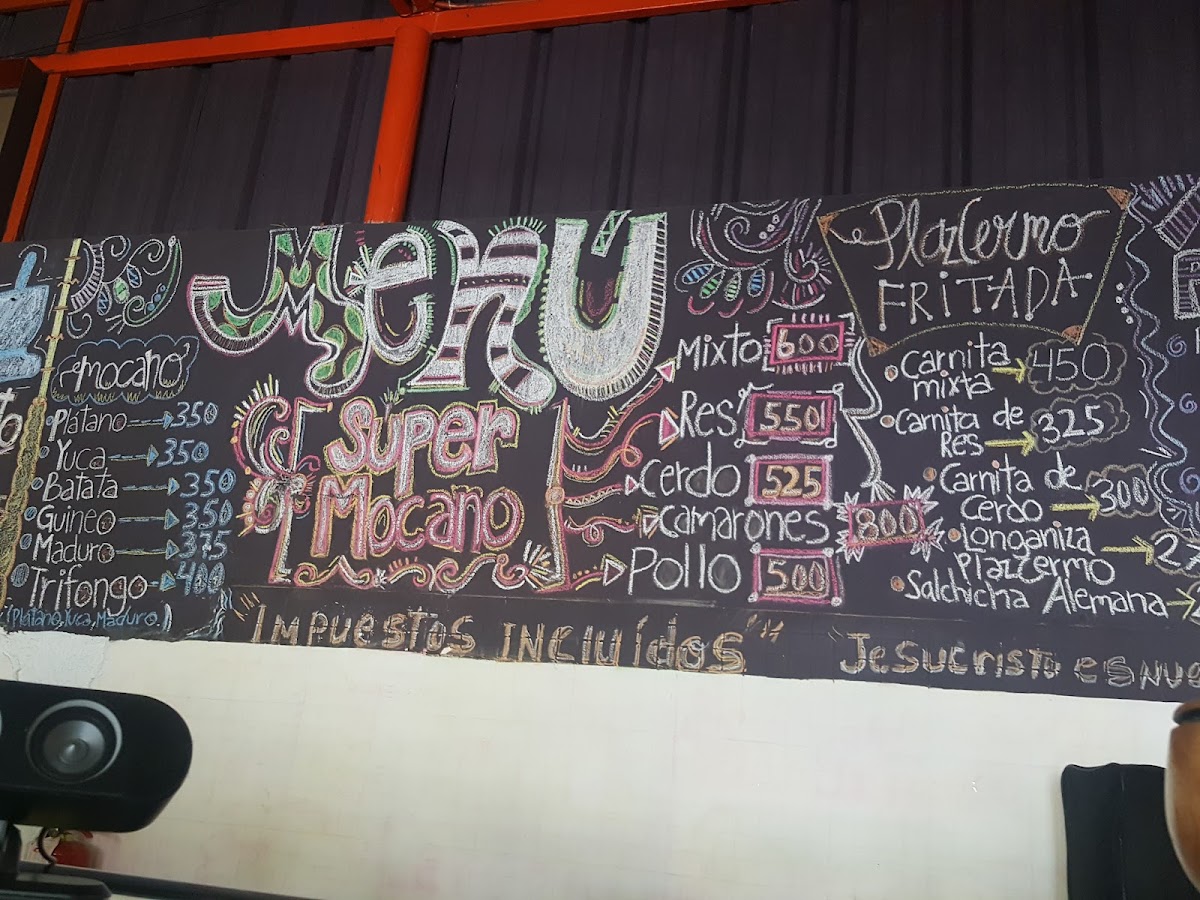 Menú
Mocano
Plátano 350
Yuca 350
Batata 350
Guineo 350
Maduro 375
Trifongo 400
(Platano, Yuca, Maduro.)
Super
Mocano
Mixto 600
Res 550
Cerdo 525
Camarones 800
Pollo 500
Plazcermo
FRITADA
Carnita
mixta 450
Carnita de
Res 325
Carnita de
Cerdo 300
Longaniza
Plazcermo
Salchicha Alemana
"IMPUESTOS INCLUÍDOS"
"JESUCRISTO ES